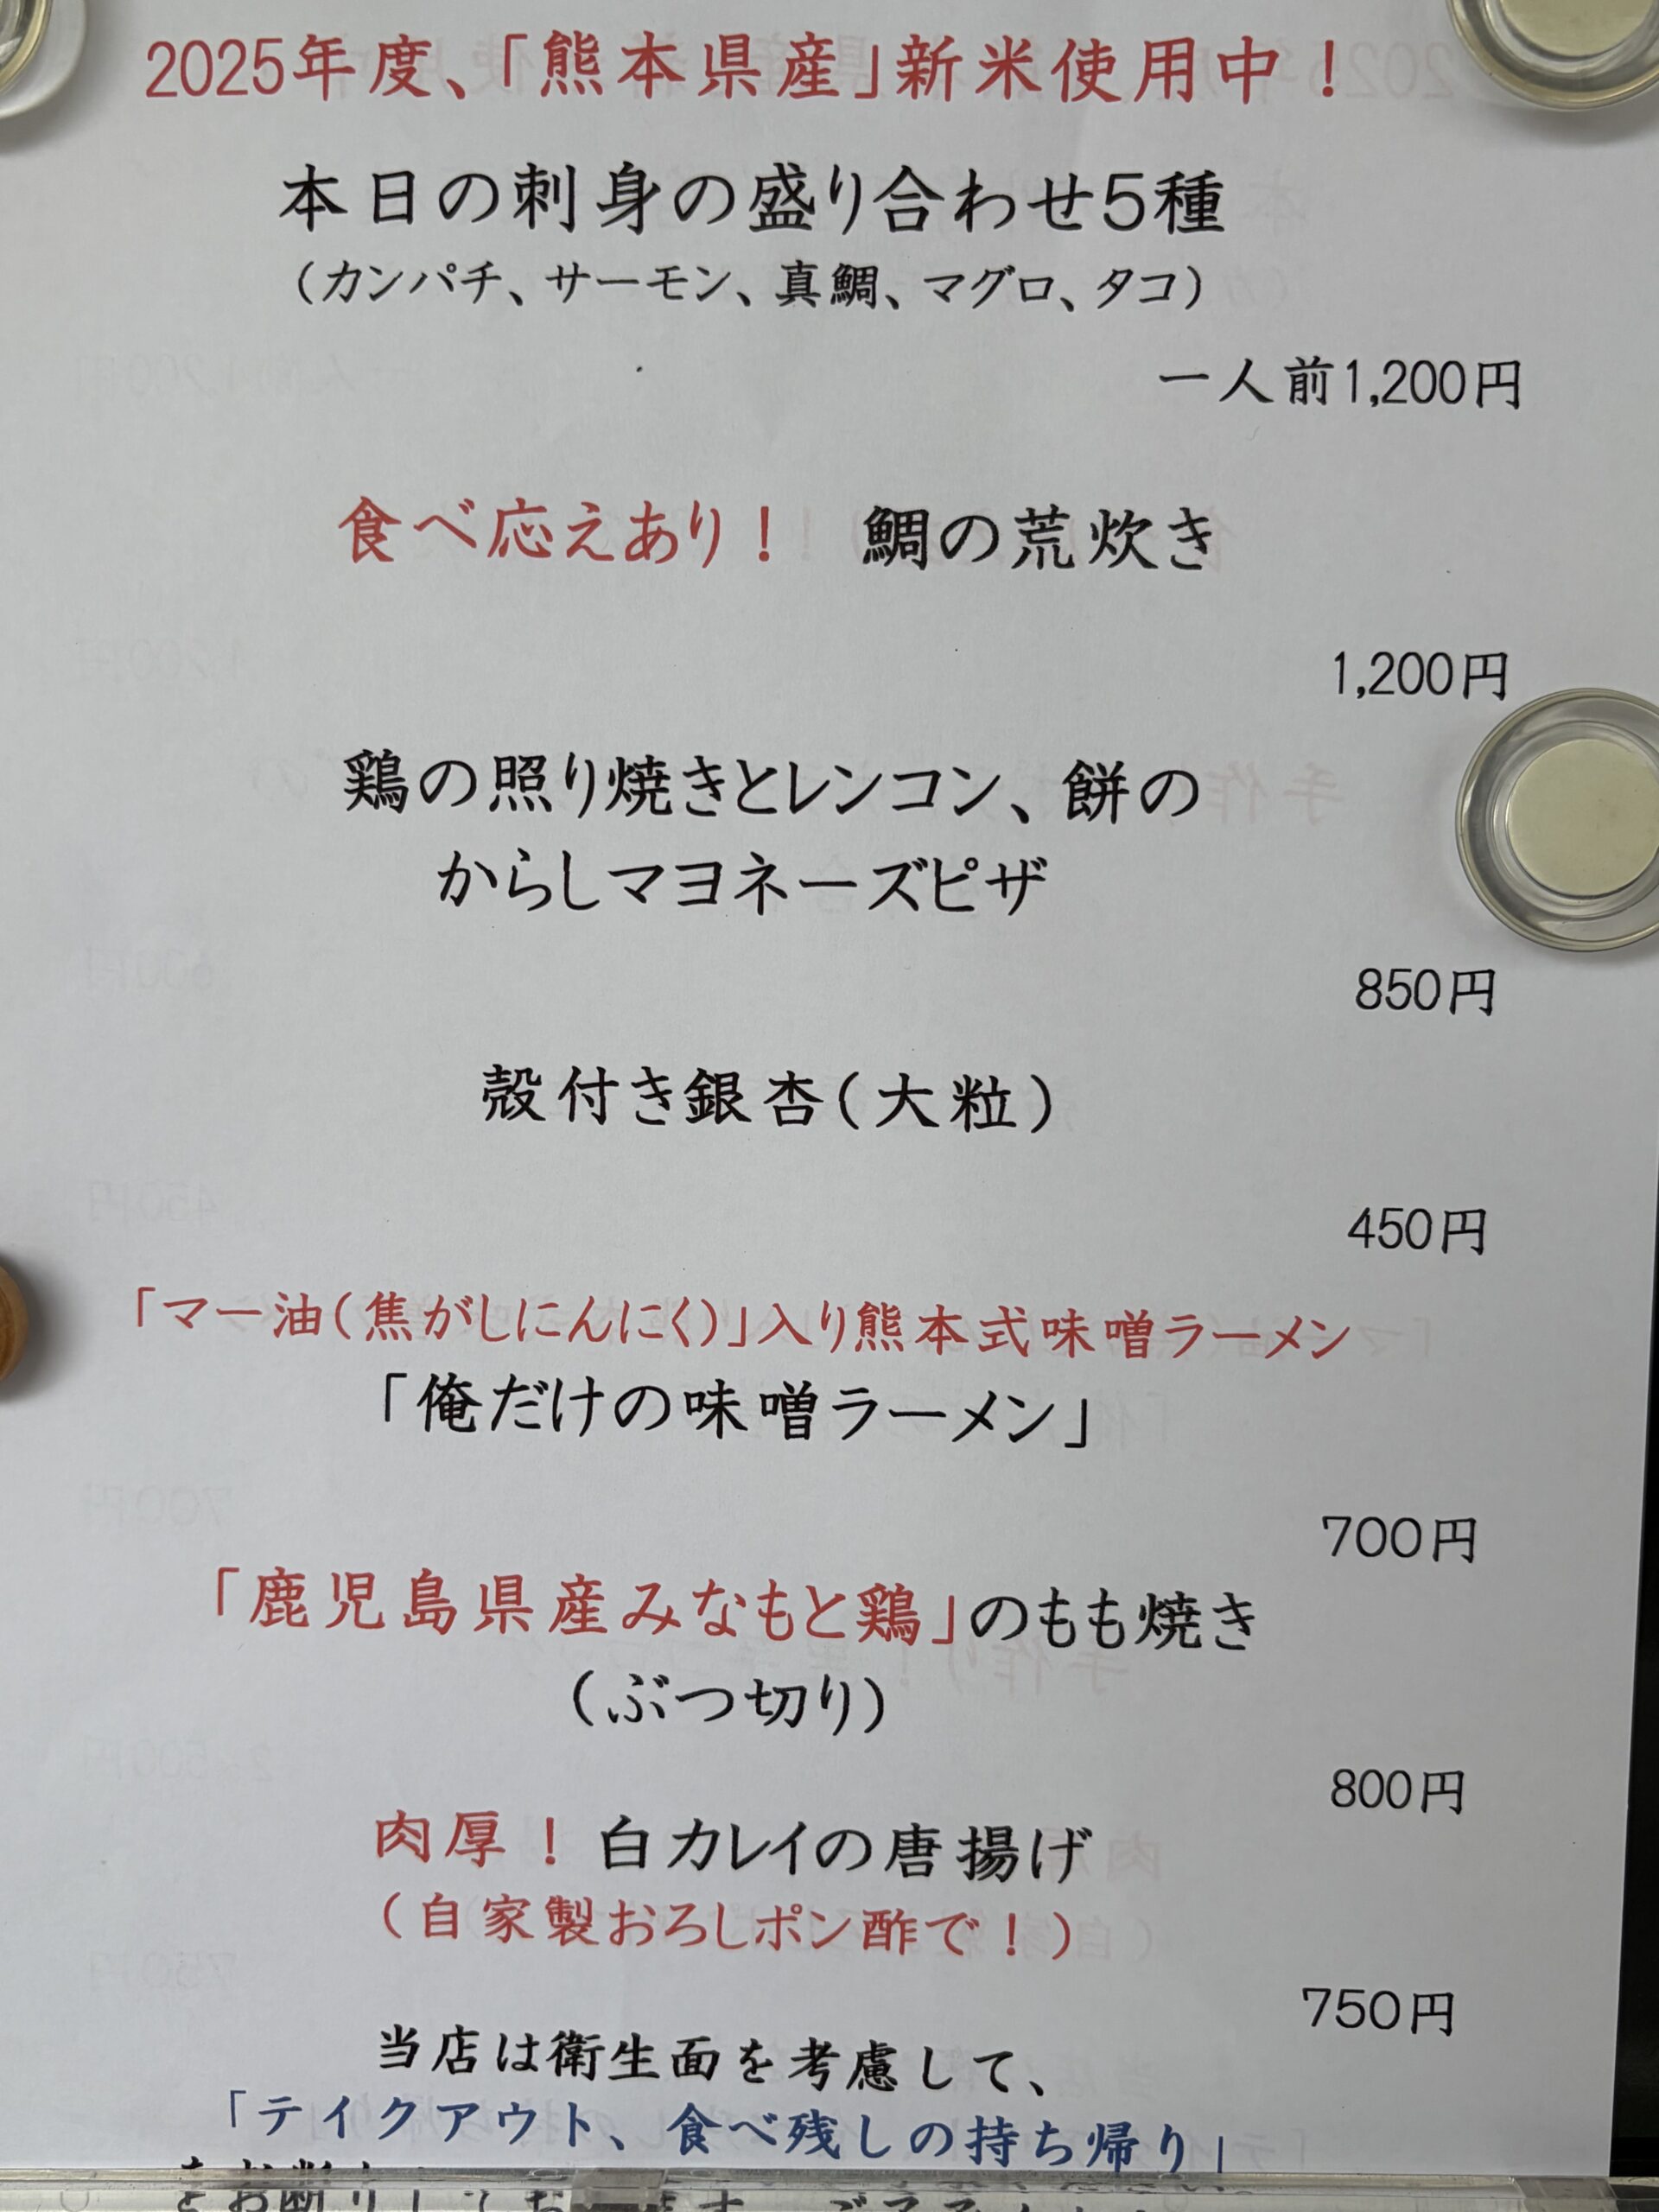 2025年度、「熊本県産」新米使用中！
本日の刺身の盛り合わせ5種
（カンパチ、サーモン、真鯛、マグロ、タコ）
一人前1,200円
食べ応えあり！ 鯛の荒炊き
1,200円
鶏の照り焼きとレンコン、餅の
からしマヨネーズピザ
850円
殻付き銀杏（大粒）
450円
「マー油（焦がしにんにく）」入り熊本式味噌ラーメン
「俺だけの味噌ラーメン」
700円
「鹿児島県産みなもと鶏」のもも焼き
（ぶつ切り）
800円
肉厚！白カレイの唐揚げ
（自家製おろしポン酢で！）
750円
当店は衛生面を考慮して、
「テイクアウト、食べ残しの持ち帰り」
をお断りしてお